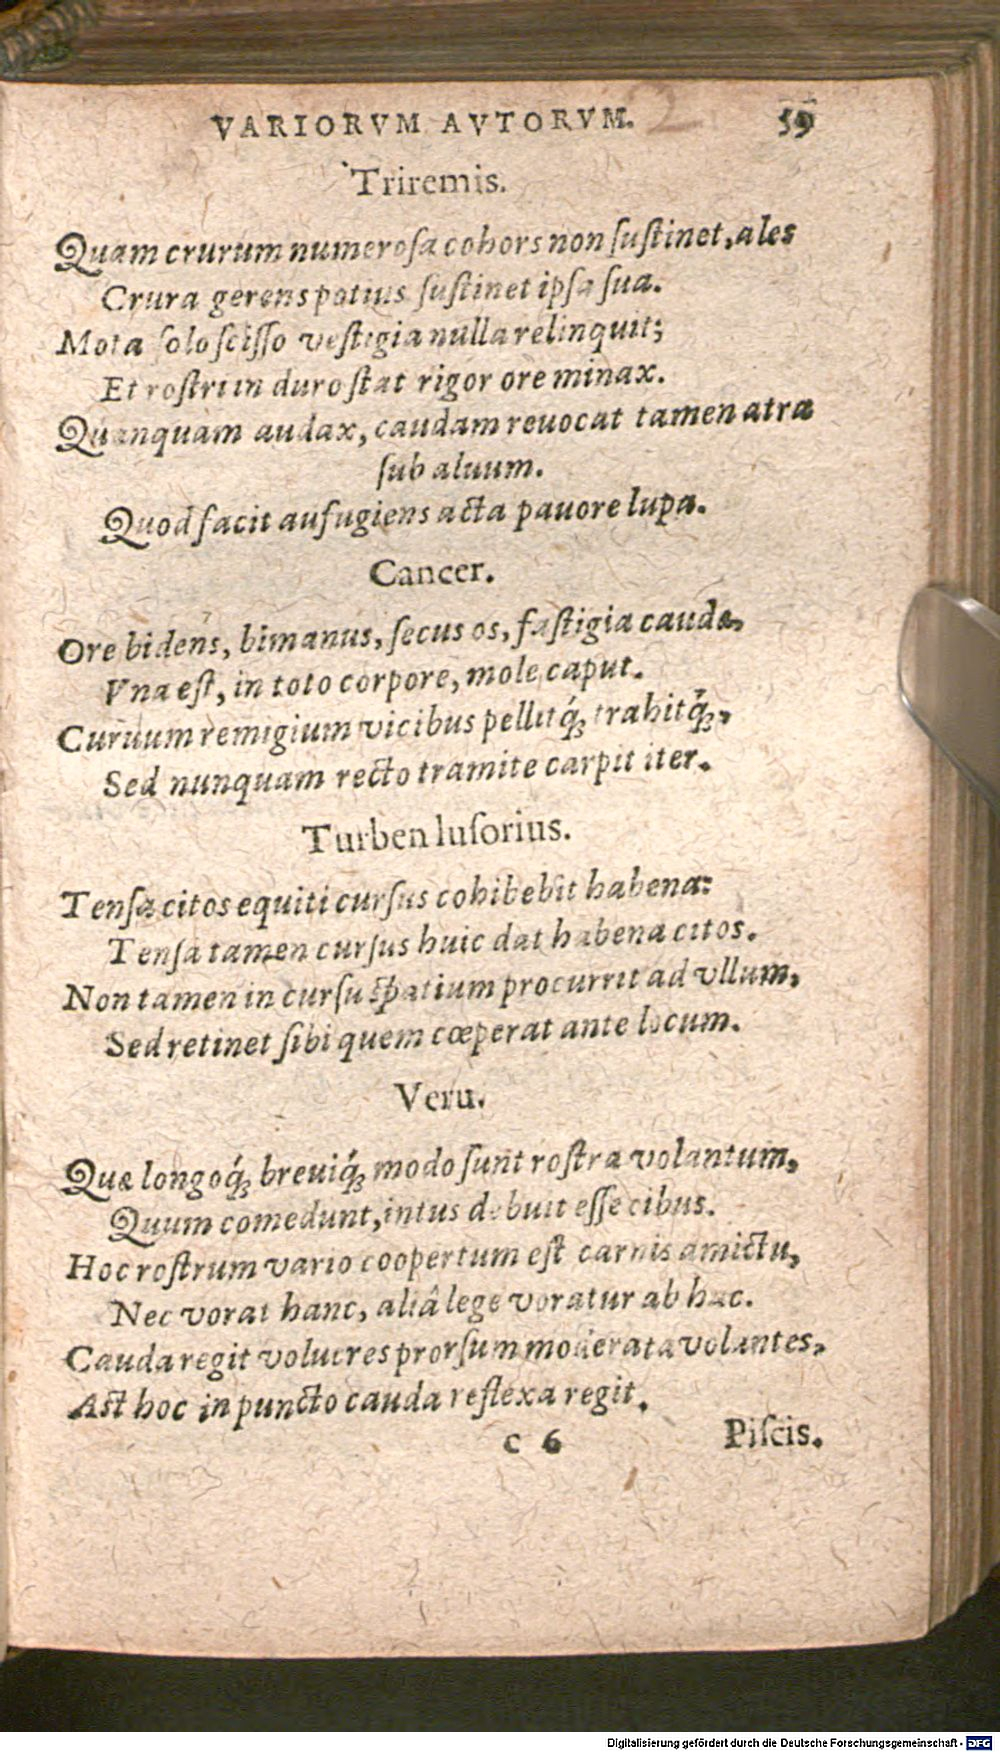 VARIORVM AVTORVM. 59
Triremis.
Quam crurum numerosa cohors non ſuſtinet, ales
Crura gerens potius ſuſtinet ipſa ſua.
Mota ſolo ſciſſo veſtigia nulla relinquit;
Et roſtri in duro ſtat rigor ore minax.
Quanquam audax, caudam reuocat tamen atra
ſub aluum.
Quod facit aufugiens acta pauore lupa.
Cancer.
Ore bidens, bimanus, ſecus os, faſtigia caudæ,
Vna eſt, in toto corpore, mole caput.
Curuum remigium vicibus pellitq́ꝫ trahitq́ꝫ,
Sed nunquam recto tramite carpit iter.
Turben luſorius.
Tenſa citos equiti curſus cohibebit habena:
Tenſa tamen curſus huic dat habena citos.
Non tamen in curſu ſpatium procurrit ad vllum,
Sed retinet ſibi quem cœperat ante locum.
Veru.
Quæ longoq́ꝫ breuiq́ꝫ modo ſunt roſtra volantum,
Quum comedunt, intus debuit eſſe cibus.
Hoc roſtrum vario coopertum eſt carnis amictu,
Nec vorat hanc, aliâ lege voratur ab hac.
Cauda regit volucres prorſum moderata volantes,
Aſt hoc in puncto cauda reflexa regit.
C 6 Piſcis.
Digitalisierung gefördert durch die Deutsche Forschungsgemeinschaft - DFG